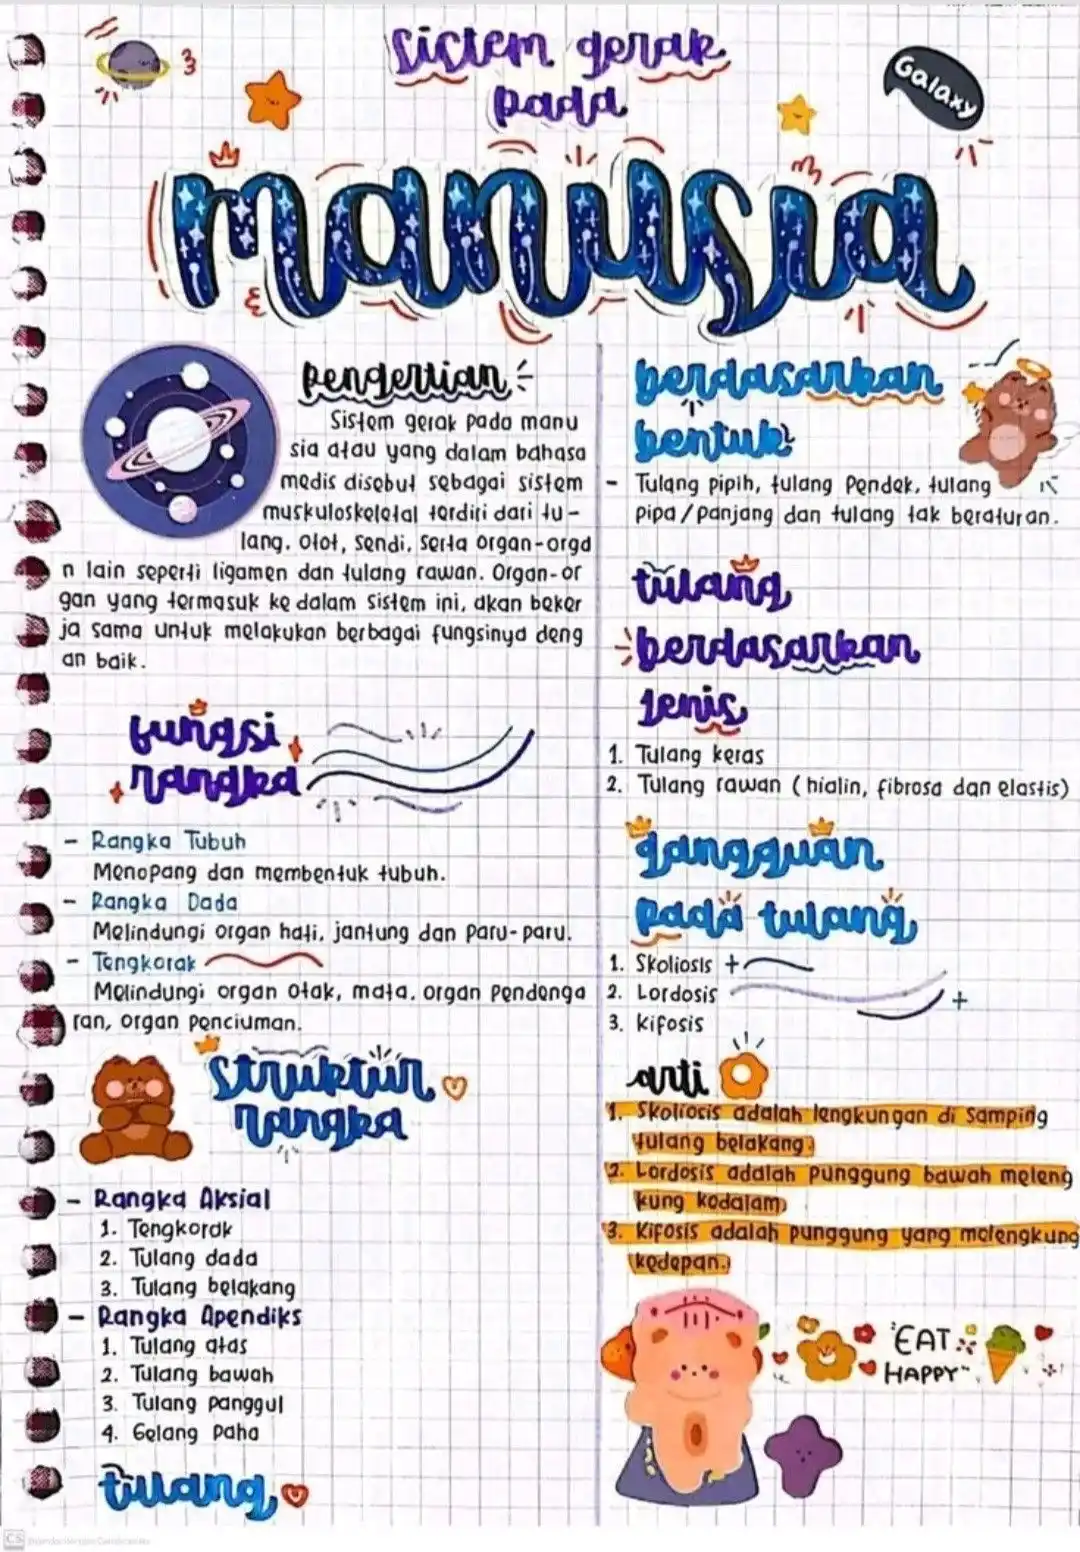 Sistem gerak
pada
Galaxy
manusia
Pengertian
Sistem gerak pada manu
sia atau yang dalam bahasa
medis disebut sebagai sistem
muskuloskeletal terdiri dari tu-
lang, otot, sendi, serta organ-orga
n lain seperti ligamen dan tulang rawan. Organ-or
gan yang termasuk ke dalam sistem ini, akan beker
ja sama untuk melakukan berbagai fungsinya deng
an baik.
fungsi
rangka
- Rangka Tubuh
Menopang dan membentuk tubuh.
- Rangka Dada
Melindungi organ hati, jantung dan paru-paru.
- Tengkorak
Melindungi organ otak, mata, organ pendenga
ran, organ penciuman.
Struktur
rangka
- Rangka Aksial
1. Tengkorak
2. Tulang dada
3. Tulang belakang
- Rangka Apendiks
1. Tulang atas
2. Tulang bawah
3. Tulang panggul
4. Gelang paha
tulang
berdasarkan
bentuk
- Tulang pipih, tulang pendek, tulang
pipa/panjang dan tulang tak beraturan.
tulang
berdasarkan
jenis
1. Tulang keras
2. Tulang rawan (hialin, fibrosa dan elastis)
gangguan
pada tulang
1. Skoliosis
2. Lordosis
3. Kifosis
arti
1. Skoliosis adalah lengkungan di samping
tulang belakang.
2. Lordosis adalah punggung bawah meleng
kung kedalam
3. Kifosis adalah punggung yang melengkung
kedepan.
"EAT
HAPPY"
CS